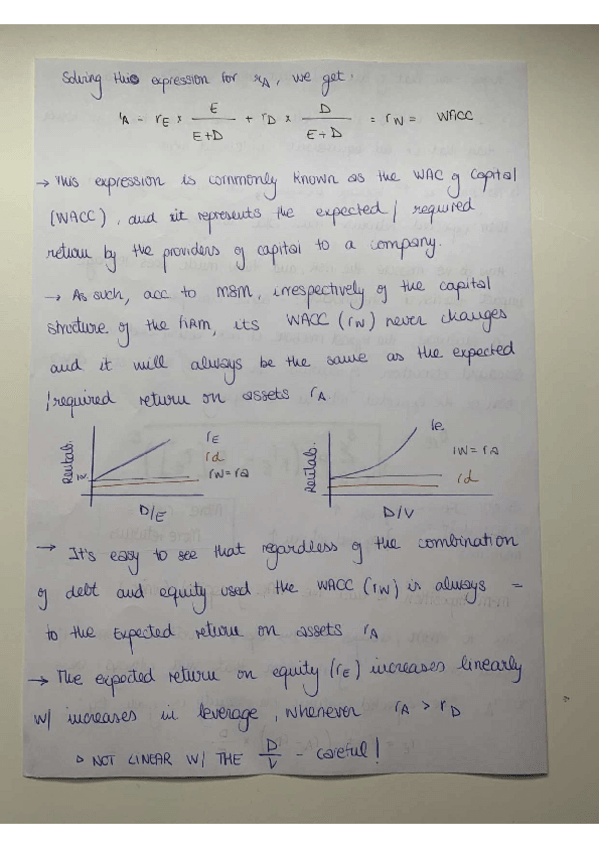 Solving this expression for rA, we get:
rA = rE × E/(E+D) + rD × D/(E+D) = rW = WACC
→ This expression is commonly known as the WAC of Capital
(WACC), and it represents the expected / required
return by the providers of capital to a company.
→ As such, acc to M&M, irrespectively of the capital
structure of the firm, its WACC (rW) never changes
and it will always be the same as the expected
/required return on assets rA
Rentab.
rw
rE
rd
rW=ra
D/E
Rentab.
re.
rW=ra
rd
D/V
→ It's easy to see that regardless of the combination
of debt and equity used the WACC (rW) is always =
to the Expected return on assets rA
→ The expected return on equity (rE) increases linearly
w/ increases in leverage, whenever rA > rD
▷ NOT LINEAR W/ THE D/V - careful!